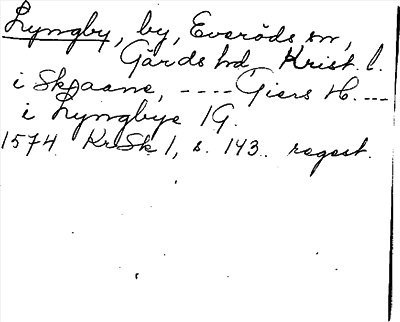 Lyngby, by, Everöds sn,
Gärds hd, Krist. l.
i Skaane, ---- Giers H. ---
i Lyngbye 1G.
1574 KrSk 1, s. 143. regest.